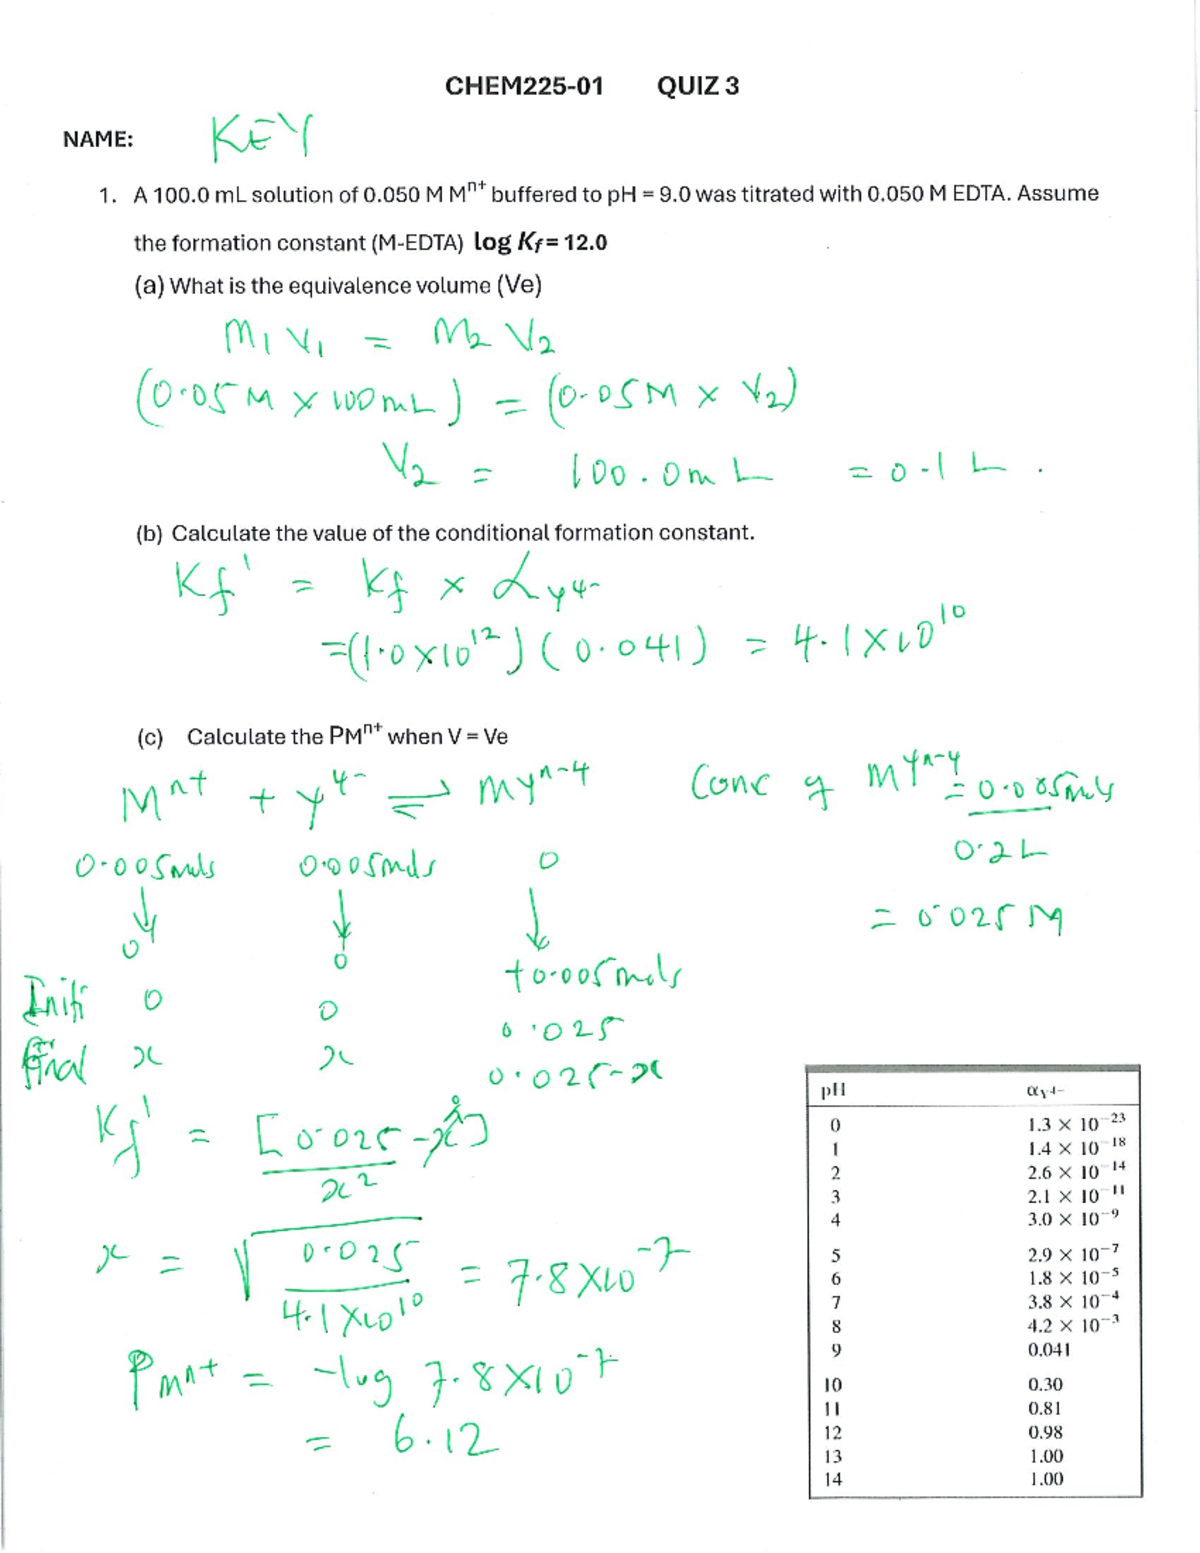 CHEM225-01 QUIZ 3
NAME: KEY
1. A 100.0 mL solution of 0.050 M Mⁿ⁺ buffered to pH = 9.0 was titrated with 0.050 M EDTA. Assume
the formation constant (M-EDTA) log Kf = 12.0
(a) What is the equivalence volume (Ve)
M₁V₁ = M₂V₂
(0.05M × 100mL) = (0.05M × V₂)
V₂ = 100.0mL = 0.1 L.
(b) Calculate the value of the conditional formation constant.
Kf' = Kf × αy4-
=(1.0×10¹²)(0.041) = 4.1×10¹⁰
(c) Calculate the PMⁿ⁺ when V = Ve
Mⁿ⁺ + y⁴⁻ ⇌ myⁿ⁻⁴
0.005mols 0.005mols 0
↓ ↓ ↓
0 0 +0.005mols
Initi 0 0 0.025
final x x 0.025-x
Conc of MYⁿ⁻⁴ = 0.005mols
0.2L
= 0.025 M
Kf' = [0.025-x]
x²
x = √ 0.025 = 7.8×10⁻⁷
4.1×10¹⁰
PMⁿ⁺ = -log 7.8×10⁻⁷
= 6.12
pH αY4−
0 1.3 × 10⁻²³
1 1.4 × 10⁻¹⁸
2 2.6 × 10⁻¹⁴
3 2.1 × 10⁻¹¹
4 3.0 × 10⁻⁹
5 2.9 × 10⁻⁷
6 1.8 × 10⁻⁵
7 3.8 × 10⁻⁴
8 4.2 × 10⁻³
9 0.041
10 0.30
11 0.81
12 0.98
13 1.00
14 1.00